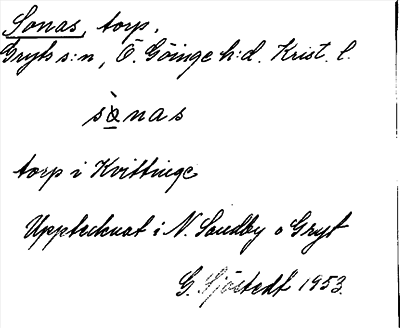 Sonas, torp.
Gryts s:n, Ö. Göinge h:d. Krist. l.
sὰnas
torp i Kvittinge
Upptecknat i N. Sandby o Gryt
G. Sjöstedt 1953.